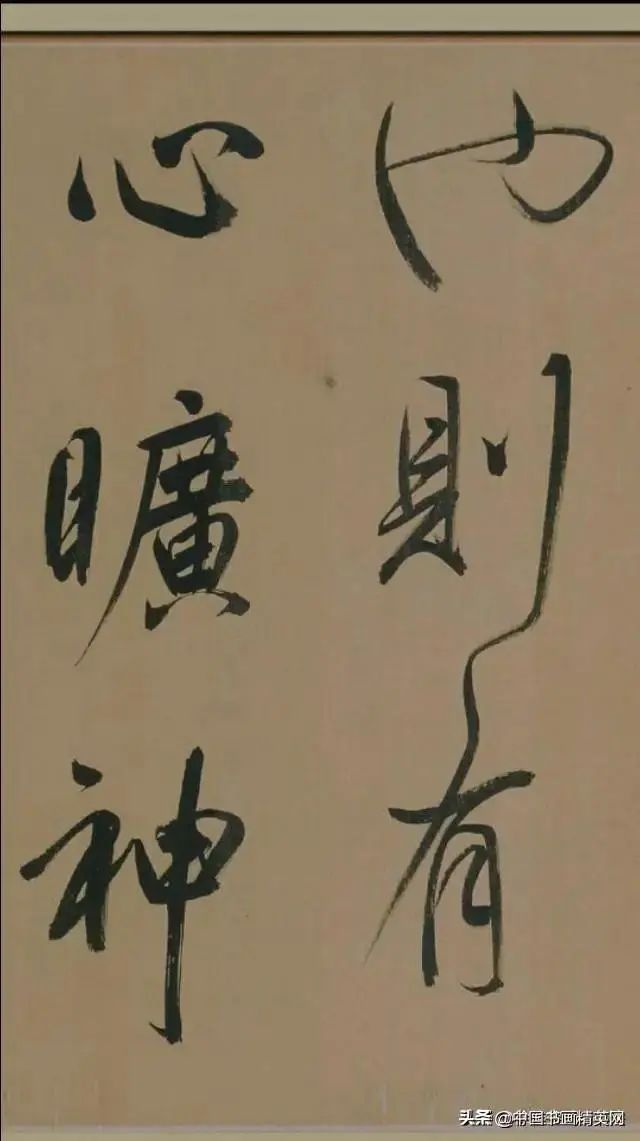 也則有
心曠神
头条 @中国书画精英网